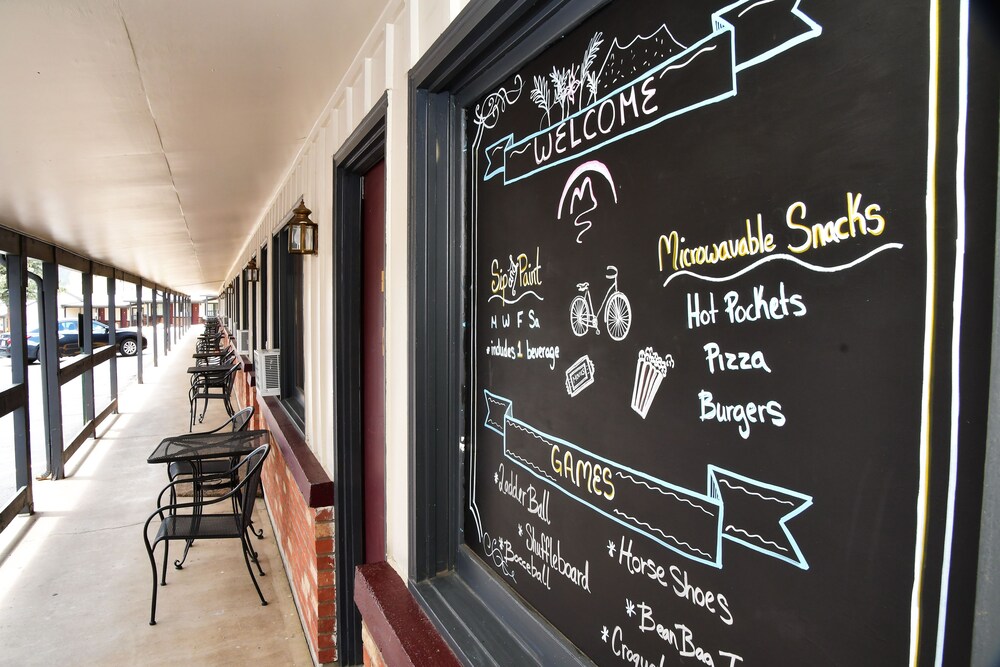 WELCOME
Sip & Paint
M W F Sa
• includes 1 beverage
Microwavable Snacks
Hot Pockets
Pizza
Burgers
GAMES
* Ladder Ball
* Shuffleboard
* Bocceball
* Horse Shoes
* Bean Bag T
* Croquet